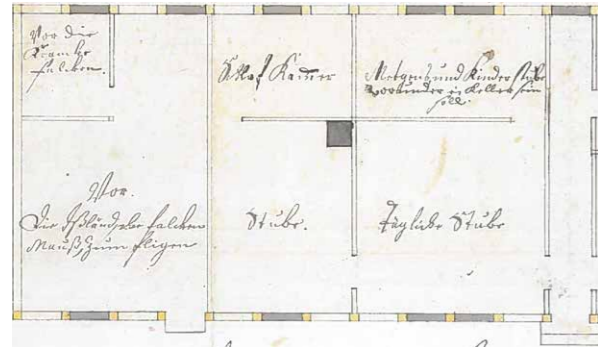 Vor die
Krancke
falcken.
Schlaf Kamer
Megens und Kinder stube
worunder ein Keller sein
soll.
Vor.
Die Ißländische falcken
Mauß, zum fligen
Stube.
Tägliche Stube